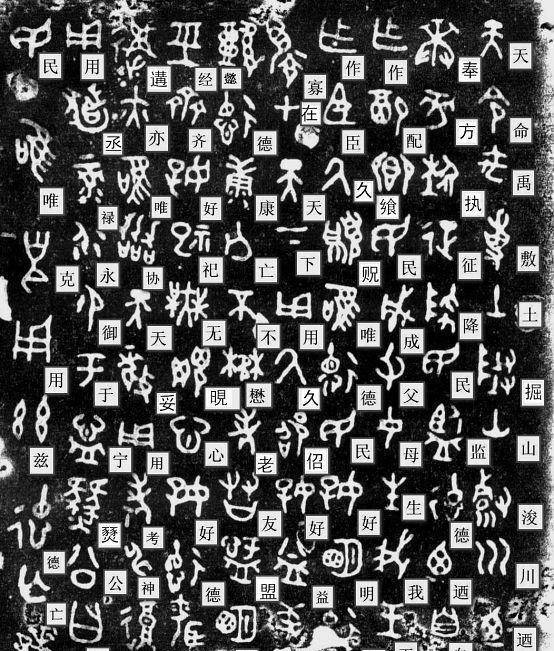 天命禹敷土掘山浚川迺
奉方执征降民监德迺
作配飨民成父母生我
作臣久贶唯德民好明
寡在天下用久佋好益
懿德康亡不懋老友盟
经齐好祀无晛心好德
遘亦唯协天妥用考神
用丞禄永御于宁燹公
民唯克用兹德亡